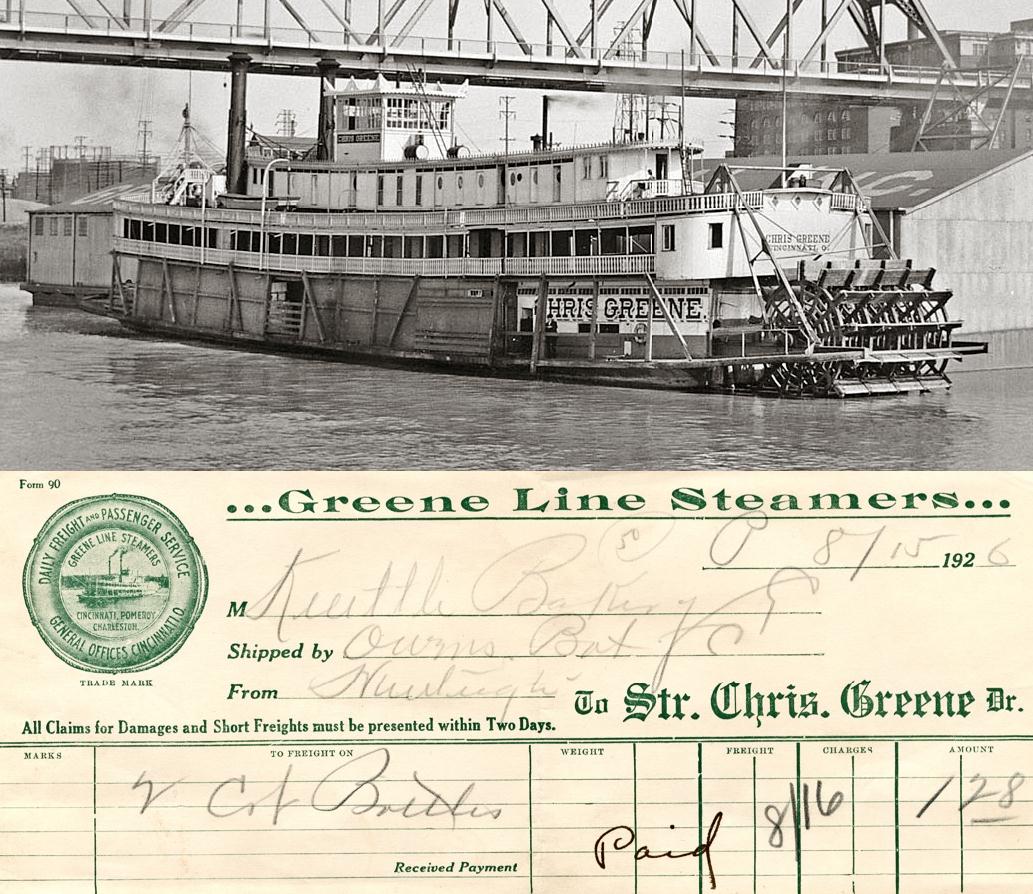 CHRIS GREENE
CHRIS GREENE
CINCINNATI, O.
CHRIS GREENE.
Form 90
...Greene Line Steamers...
DAILY FREIGHT AND PASSENGER SERVICE
GREENE LINE STEAMERS
CINCINNATI, POMEROY,
CHARLESTON.
GENERAL OFFICES CINCINNATI, O.
TRADE MARK
8/15 1926
M
Shipped by Owens Bot
From
To Str. Chris. Greene Dr.
All Claims for Damages and Short Freights must be presented within Two Days.
MARKS TO FREIGHT ON WEIGHT FREIGHT CHARGES AMOUNT
Bottles 1 28
Paid 8/16
Received Payment